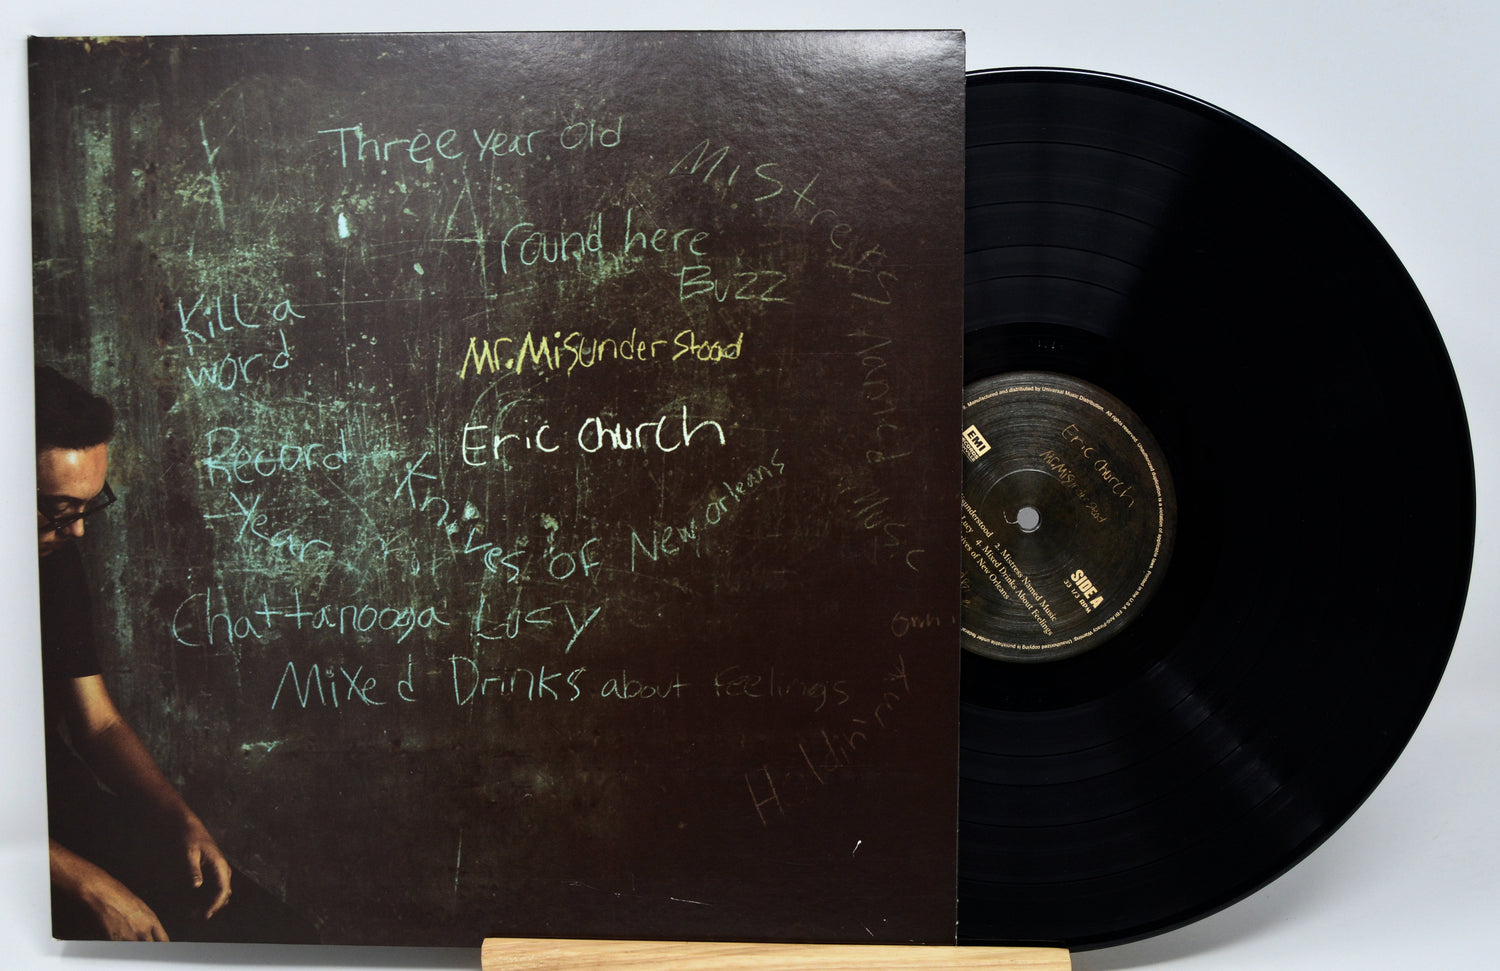 Three year old
Mistress Named Music
round here
Buzz
Kill a
word
Mr. Misunderstood
Eric Church
Record
Year
Knives of New Orleans
Chattanooga Lucy
Mixed Drinks about Feelings
Holdin
Manufactured and distributed by Universal Music Distribution. All rights reserved.
EMI
RECORDS
Eric Church
Mr. Misunderstood
2. Mistress Named Music
Lucy 4. Mixed Drinks About Feelings
of New Orleans
SIDE A
33 1/3 RPM